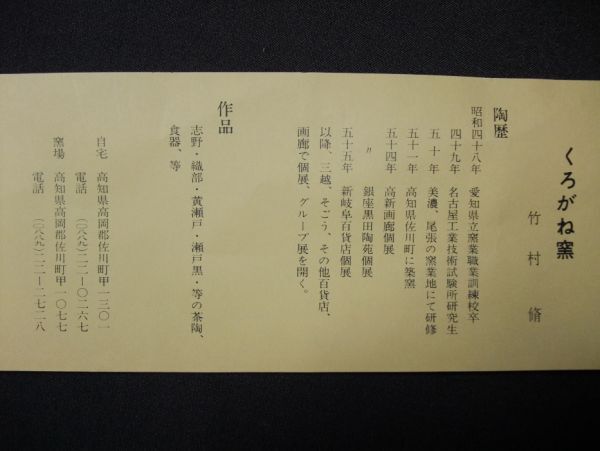 くろがね窯
竹村脩
陶歴
昭和四十八年 愛知県立窯業職業訓練校卒
四十九年 名古屋工業技術試験所研究生
五十年 美濃、尾張の窯業地にて研修
五十一年 高知県佐川町に築窯
五十四年 高新画廊個展
〃 銀座黒田陶苑個展
五十五年 新岐阜百貨店個展
以降、三越、そごう、その他百貨店、
画廊で個展、グループ展を開く。
作品
志野・織部・黄瀬戸・瀬戸黒・等の茶陶、
食器、等
自宅 高知県高岡郡佐川町甲一三〇一
電話 (〇八八九)二二―〇二六七
窯場 高知県高岡郡佐川町甲一〇七七
電話 (〇八八九)二二―二七二八